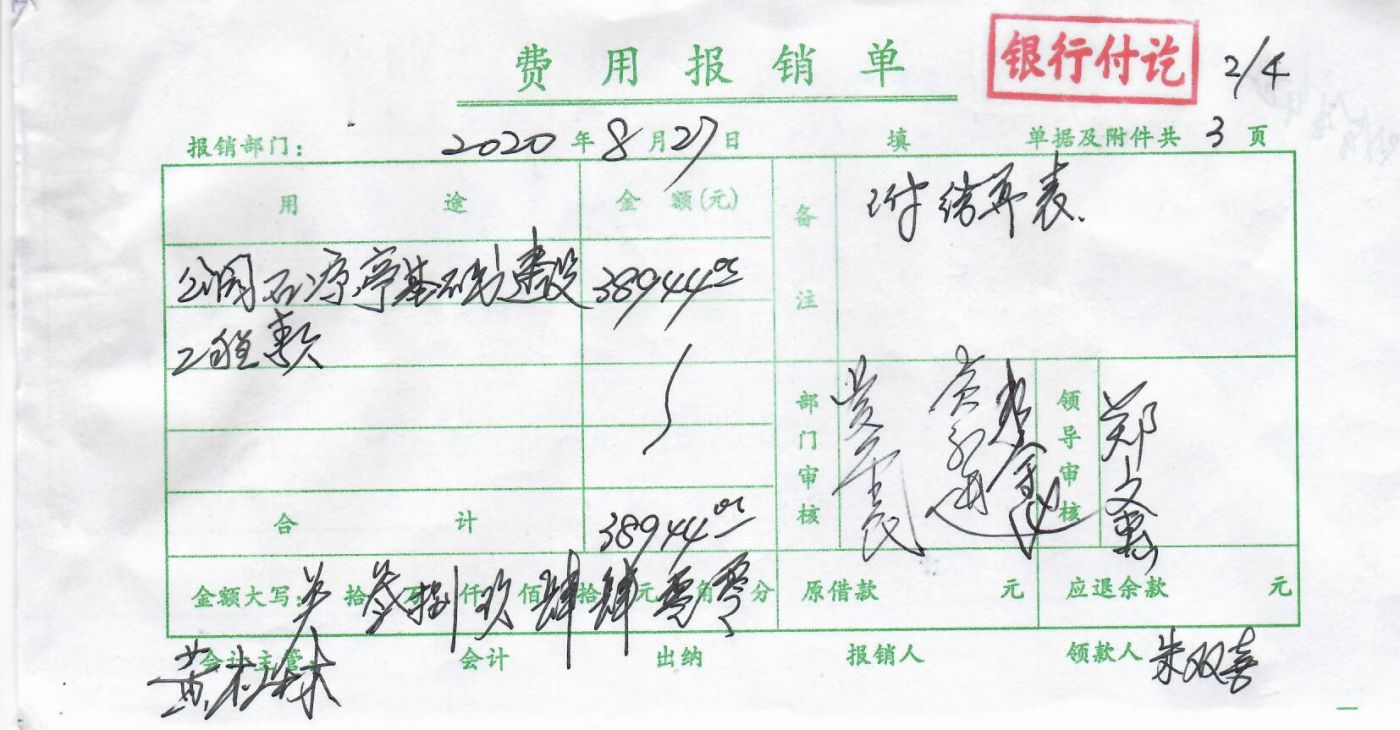 费用报销单 银行付讫 2/4
报销部门: 2020年8月27日 填 单据及附件共 3 页
用途 金额(元) 备注 附结算表.
公园石凉亭基础建设 38944.00
工程款
部门审核 领导审核 郑文惠
合计 38944.00
金额大写: 拾叁万捌仟玖佰肆拾肆元零角零分 原借款 元 应退余款 元
会计主管 会计 出纳 报销人 领款人 朱双喜
黄 林